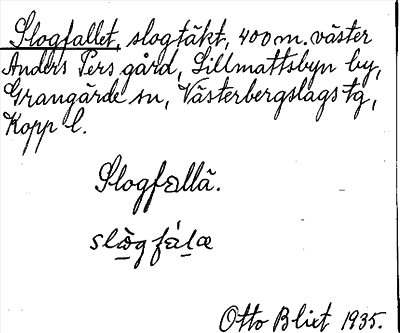 Slogfallet, slogtäkt, 400 m. väster
Anders Pers gård, Lillmattsbyn by,
Grangärde sn, Västerbergslags tg,
Kopp l.
Slogfallä.
slo̲̊g fá̀l̲æ
Otto Blixt 1935.